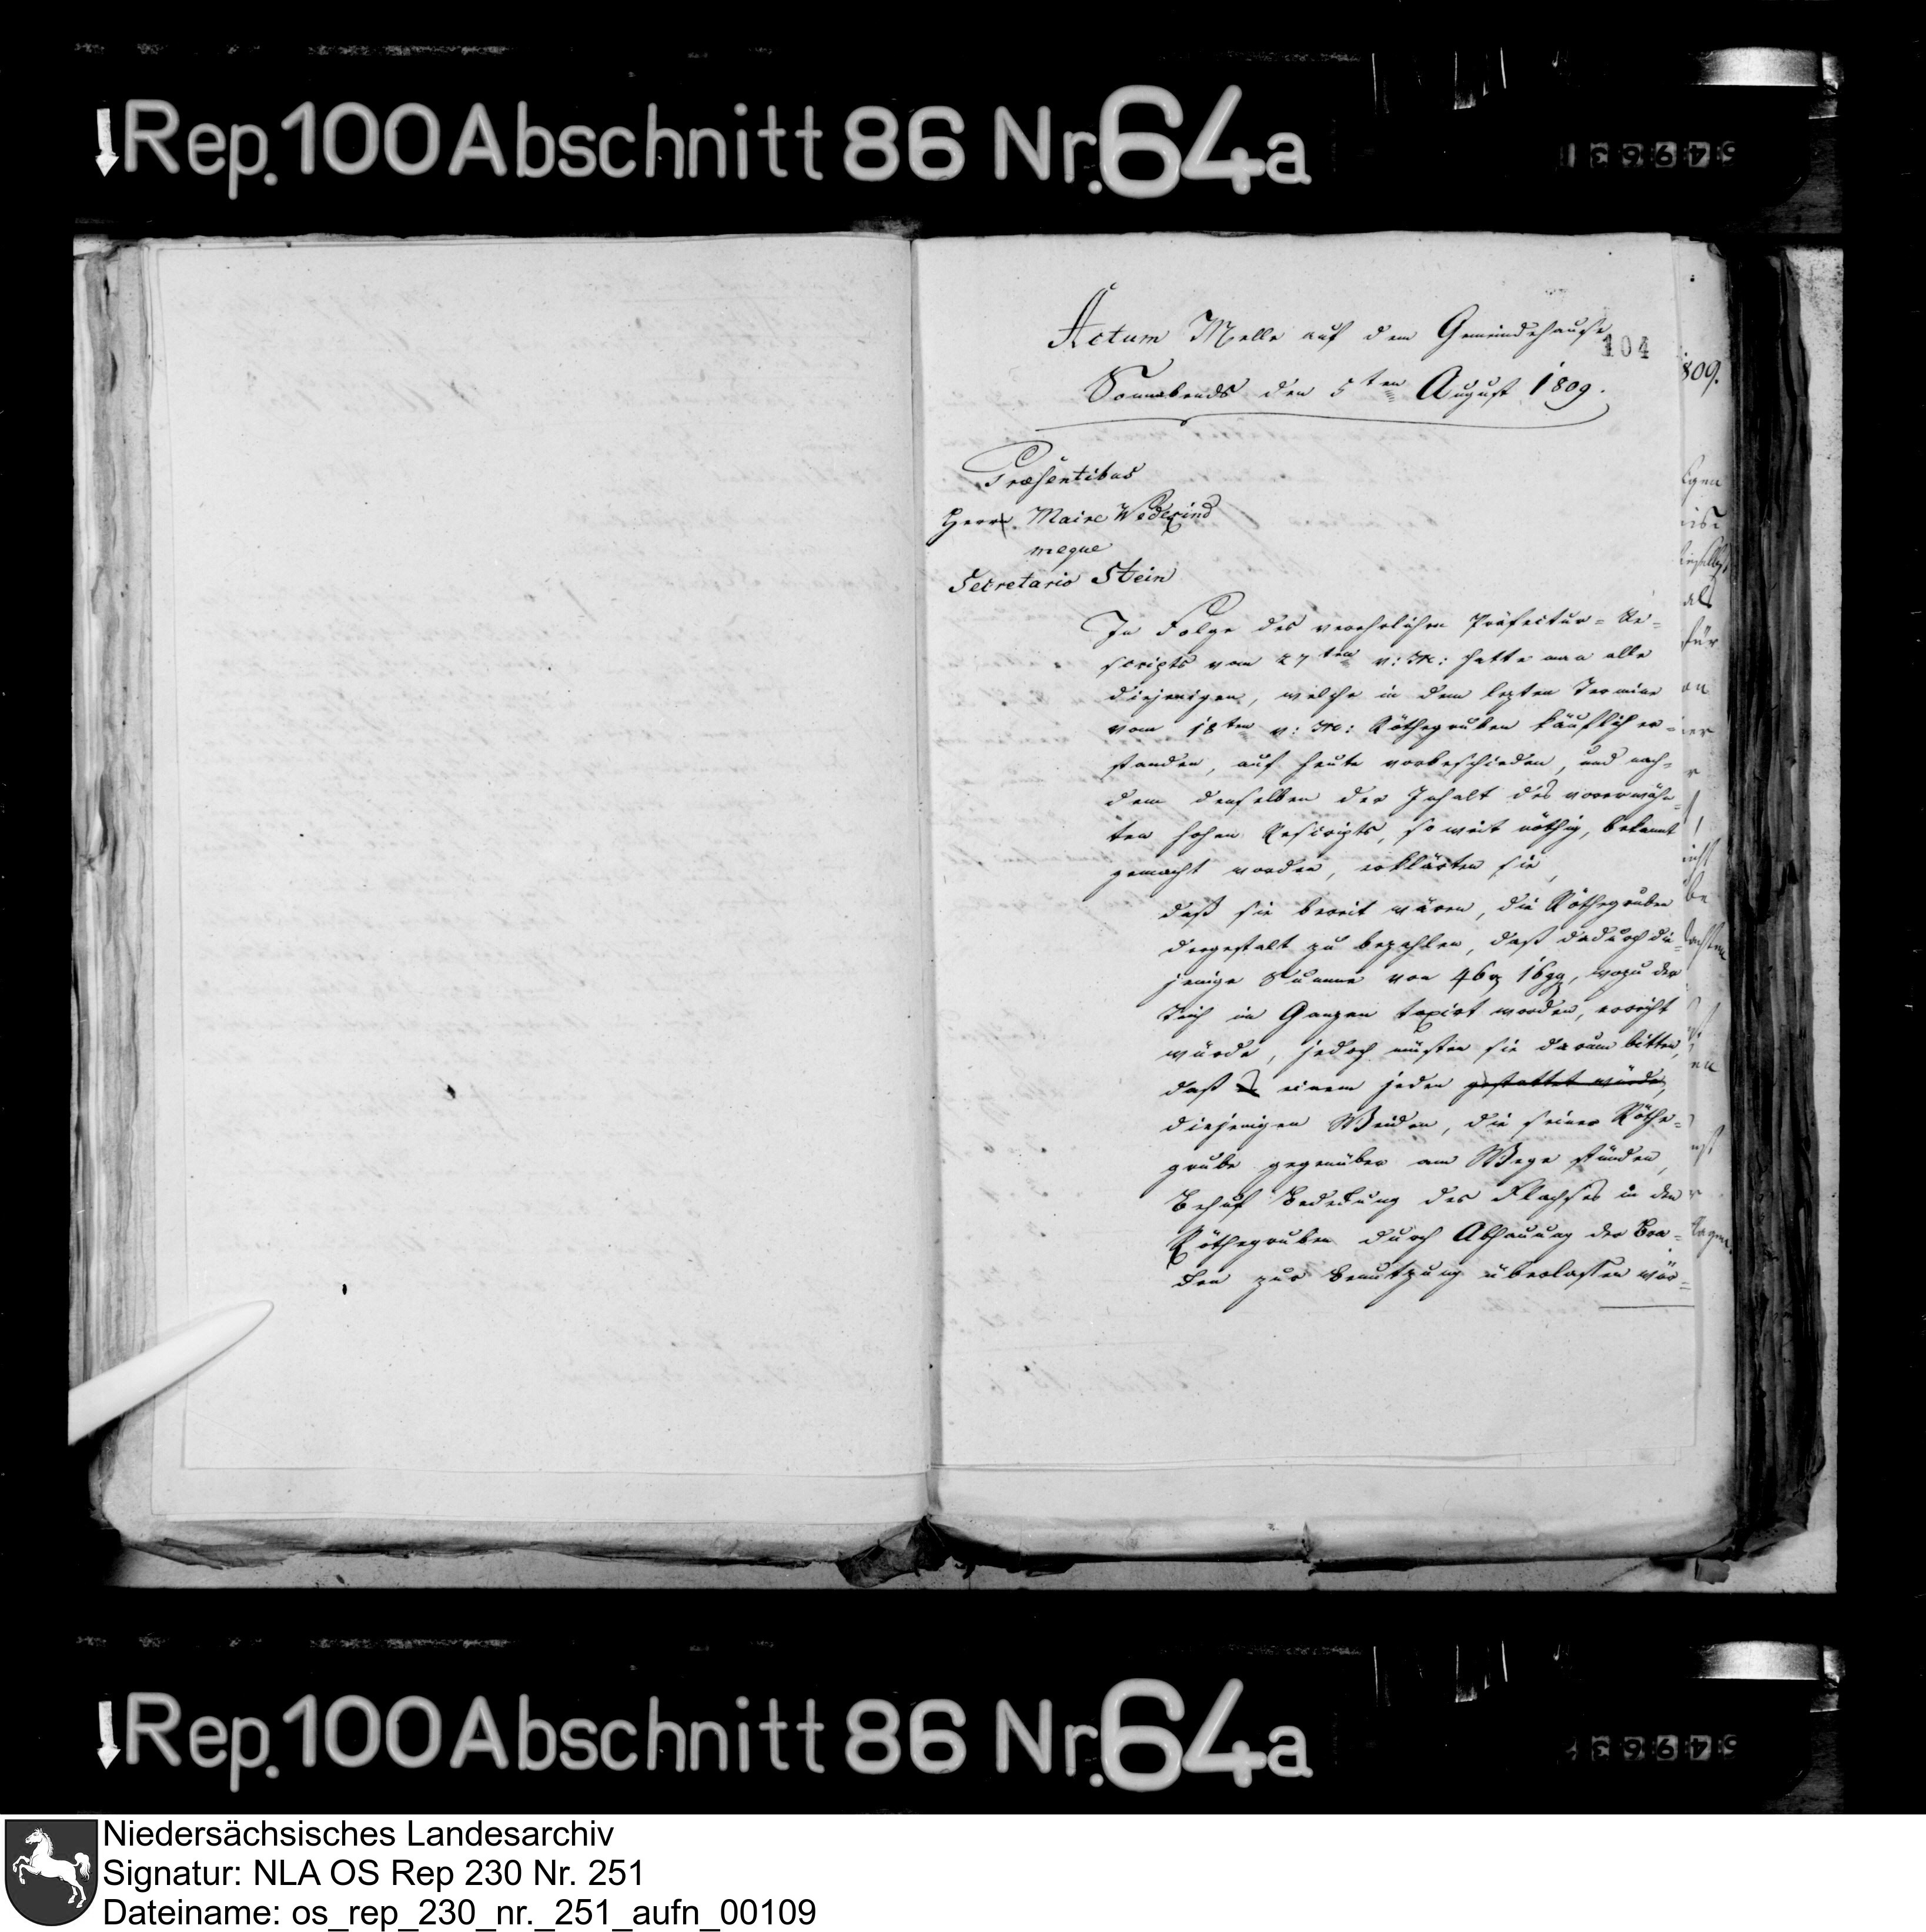 Rep. 100 Abschnitt 86 Nr. 64a
Actum Melle auf dem Gemeindehause
104
Sonnabends den 5ten August 1809.
Præsentibus
Herrn Maire Wedekind
meque
Secretario Stein
In Folge des verehrlichen Präfectur-Re-
scripts vom 27ten v: M: hatte man alle
diejenigen, welche in dem lezten Termine
vom 18ten v: M: Röthegruben käuflich er-
standen, auf heute vorbeschieden, und nach-
dem denselben der Inhalt des vorerwähn-
ten hohen Rescripts, so weit nöthig, bekannt
gemacht worden, erklärten sie,
daß sie bereit wären, die Röthegruben
dergestalt zu bezahlen, daß dadurch die-
jenige Summe von 46 16, wozu der
Teich im Ganzen taxirt worden, erreicht
würde, jedoch müsten sie darum bitten,
daß einem jeden gestattet würde,
diejenigen Weiden, die seiner Röthe-
grube gegenüber am Wege stünden,
Behuf Bedeckung des Flachses in den
Röthegruben durch Abhauung der
zur Benutzung überlassen wür-
809.
als
für
Rep. 100 Abschnitt 86 Nr. 64a
Niedersächsisches Landesarchiv
Signatur: NLA OS Rep 230 Nr. 251
Dateiname: os_rep_230_nr._251_aufn_00109